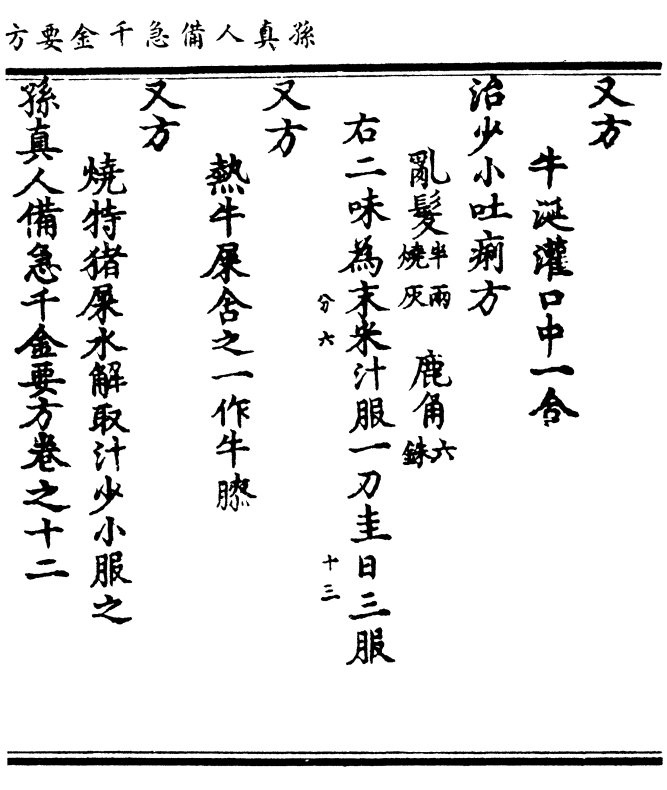 孫真人備急千金要方
又方
牛涎灌口中一合
治少小吐痢方
亂髮半兩燒灰 鹿角六銖
右二味為末米汁服一刀圭日三服
分六 十三
又方
熱牛屎含之一作牛膫
又方
燒特猪屎水解取汁少小服之
孫真人備急千金要方卷之十二